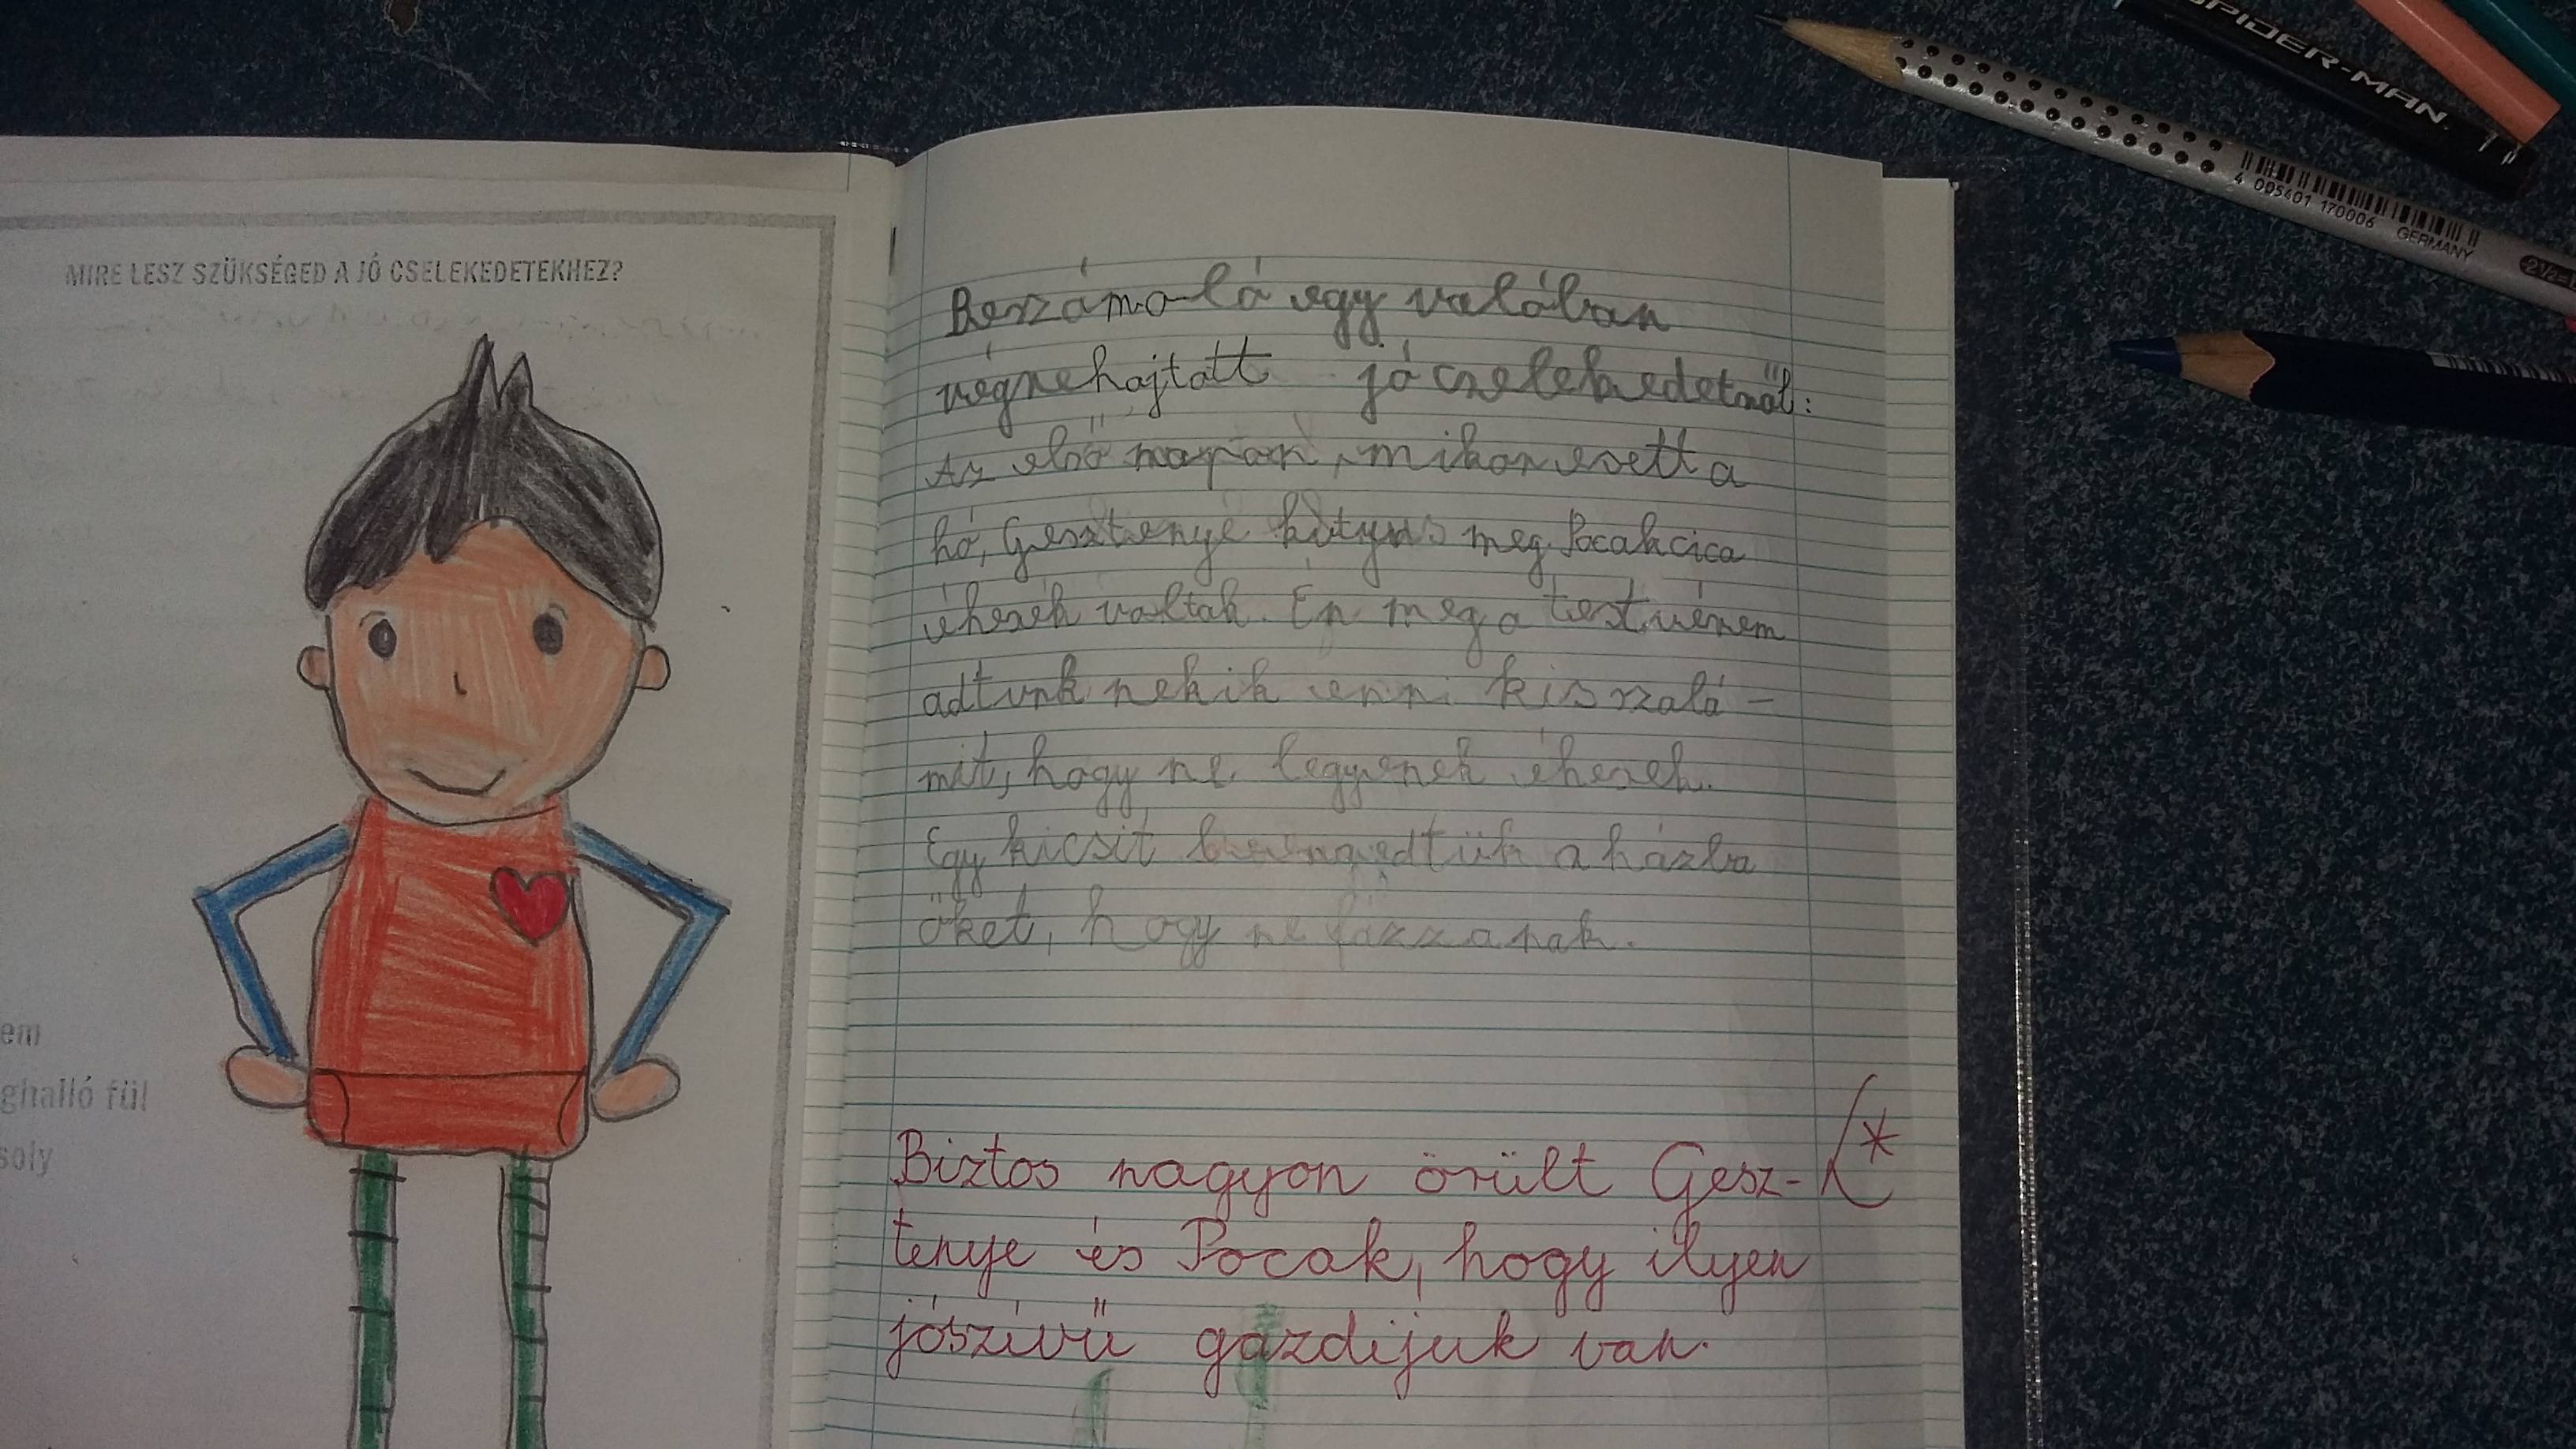 MIRE LESZ SZÜKSÉGED A JÓ CSELEKEDETEKHEZ?
em
ghalló fül
soly
Beszámoló egy valóban
végrehajtott jó cselekedetről:
Az első napon, mikor esett a
hó, Gesztenye kutyus meg Pocak cica
éhesek voltak. Én meg a testvérem
adtunk nekik enni kis szalá-
mit, hogy ne legyenek éhesek.
Egy kicsit beengedtük a házba
őket, hogy ne fázzanak.
Biztos nagyon örült Gesz-
tenye és Pocak, hogy ilyen
jószívű gazdijuk van.
SPIDER-MAN
4 005401 170006
GERMANY